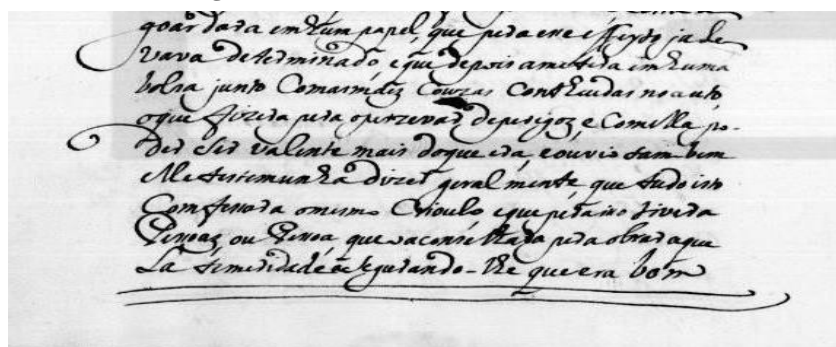 goardara em hum papel, que pera esse effeyto ja le
vava determinado, e que depois a metera em huma
bolsa junto Com as máis Couzas Contheudas no auto
o que fizera pera o prezervar de perigoz e Com ella po-
der ser valente mais do que era, e ouvio tam bem
elle testemunha dizer geral mente, que tudo isto
Comfessara o mesmo Crioulo e que pera isso tivera
Pessoaz ou Pessoa que o aconselhara pera obrar aque
La temeridade asegurando-lhe que era bom